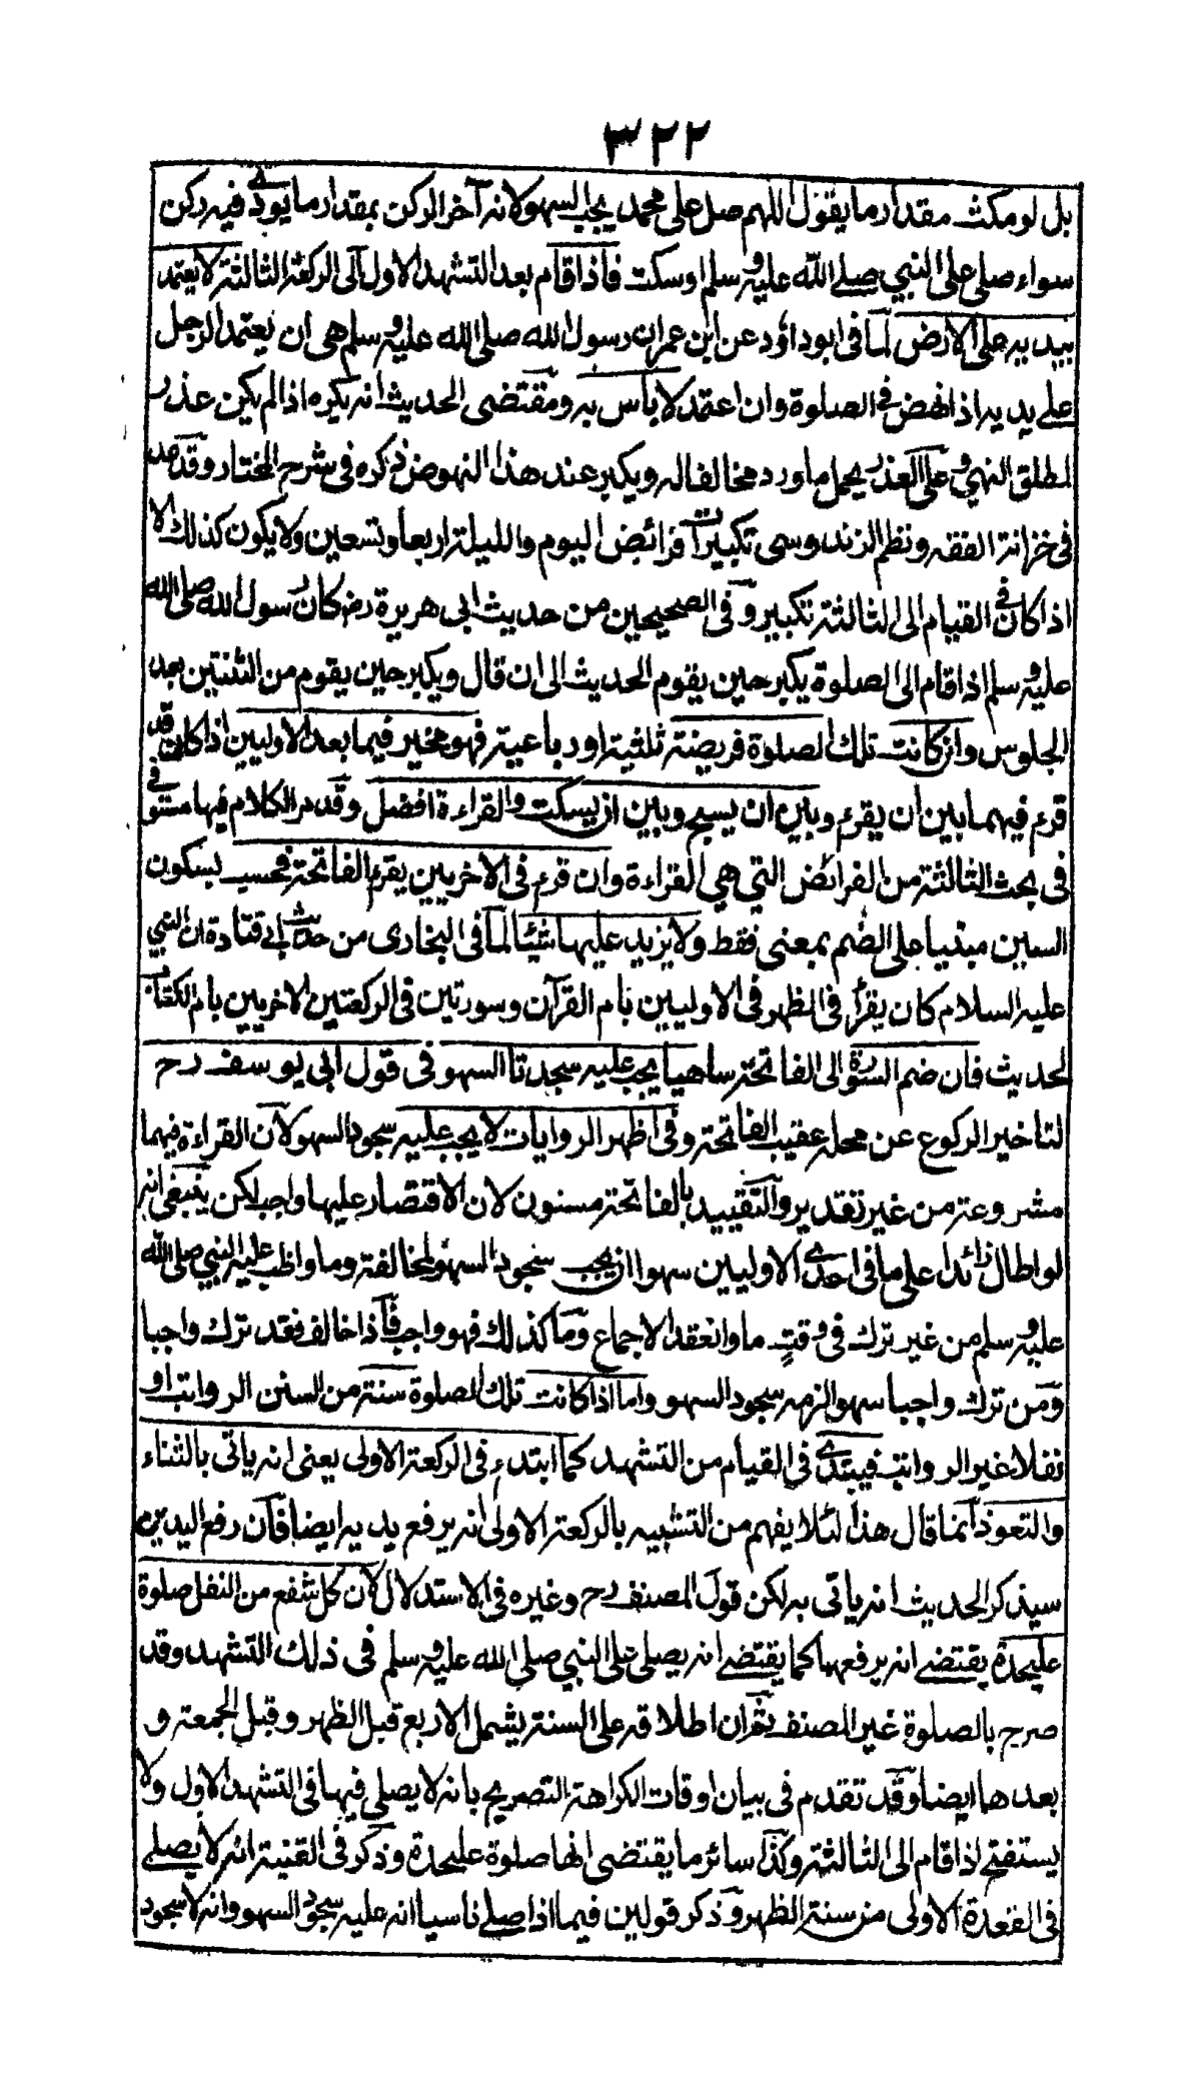 ٣٢٢
بل لو مكث مقدار ما يقول اللهم صل على محمد يجب السهو لانه آخر الركن بمقدار ما يودى فيه ركن
سواء صلى على النبي صلى الله عليه وسلم او سكت فاذا قام بعد التشهد الاول الى الركعة الثالثة لا يعتمد
بيديه على الارض لما فى ابوداؤد عن ابن عمر ان رسول الله صلى الله عليه وسلم نهى ان يعتمد الرجل
على يديه اذا نهض فى الصلوة وان اعتمد لا بأس به ومقتضى الحديث انه يكره اذا لم يكن عذر
لمطلق النهي وعلى العذر يحمل ما ورد مخالفا له ويكبر عند هذا النهوض ذكره فى شرح المختار وقد
فى خزانة الفقه ونظم الزندوسى تكبيرات فرائض اليوم والليلة اربعا وتسعين ولا يكون كذلك الا
اذا كان فى القيام الى الثالثة تكبير وفى الصحيحين من حديث ابى هريرة رض كان رسول الله صلى الله
عليه وسلم اذا قام الى الصلوة يكبر حين يقوم الحديث الى ان قال ويكبر حين يقوم من الثنتين بعد
الجلوس وان كانت تلك الصلوة فريضة ثلثية او رباعية فهو مخير فيما بعد الاوليين اذا كان قد
قرء فيهما بين ان يقرء وبين ان يسبح وبين ان يسكت والقراءة افضل وقدم الكلام فيها مستوفى
فى بحث الثالثة من الفرائض التي هي القراءة وان قرء فى الاخريين يقرء الفاتحة فحسب بسكون
السين مبنيا على الضم بمعنى فقط ولا يزيد عليها شيئا لما فى البخارى من حديث ابى قتادة ان النبي
عليه السلام كان يقرأ فى الظهر فى الاوليين بام القرآن وسورتين فى الركعتين الاخريين بام الكتاب
لحديث فان ضم السورة الى الفاتحة ساهيا يجب عليه سجدتا السهو فى قول ابى يوسف رح
لتاخير الركوع عن محله عقيب الفاتحة وفى اظهر الروايات لا يجب عليه سجود السهو لان القراءة فيهما
مشروعة من غير تقدير والتقييد بالفاتحة مسنون لان الاقتصار عليها واجب لكن ينبغى انه
لو اطال زائدا على ما فى احدى الاوليين سهوا ان يجب سجود السهو لمخالفة وما واظب عليه النبي صلى الله
عليه وسلم من غير ترك فى وقتٍ ما وانعقد الاجماع وما كذلك فهو واجب فاذا خالف فقد ترك واجبا
ومن ترك واجبا سهوا لزمه سجود السهو واما اذا كانت تلك الصلوة سنة من السنن الرواتب او
نفلا غير الرواتب فيبتدى فى القيام من التشهد كما ابتدء فى الركعة الاولى يعنى انه ياتى بالثناء
والتعوذ انما قال هذا لئلا يفهم من التشبيه بالركعة الاولى انه يرفع يديه ايضا فان رفع اليدين
سيذكر الحديث انه ياتى به لكن قول المصنف رح وغيره فى الاستدلال لان كل شفع من النفل صلوة
عليحدة يقتضى انه يرفعهما كما يقتضى انه يصلى على النبي صلى الله عليه وسلم فى ذلك التشهد وقد
صرح بالصلوة غير المصنف ثم ان اطلاقه على السنة يشمل الاربع قبل الظهر وقبل الجمعة و
بعدها ايضا وقد تقدم فى بيان اوقات الكراهة التصريح بانه لا يصلى فيها فى التشهد الاول ولا
يستفتح اذا قام الى الثالثة وكذا سائر ما يقتضى انها صلوة عليحدة وذكر فى القنية انه لا يصلى
فى القعدة الاولى من سنة الظهر وذكر قولين فيما اذا صلى ناسيا انه عليه سجود السهو وانه لا سجود